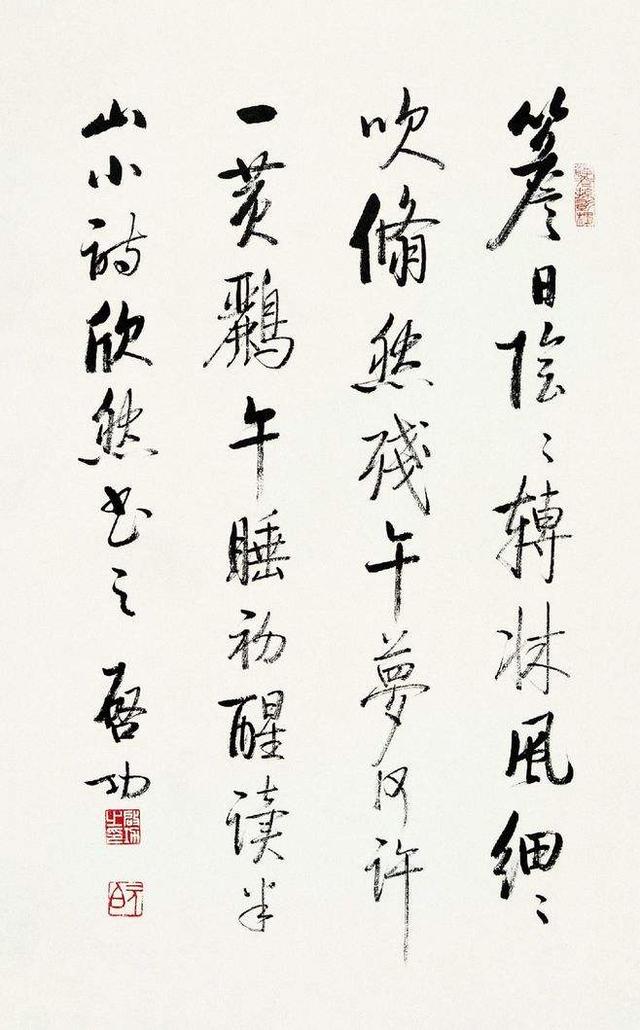 簷日陰〻轉牀風細〻
吹翛然殘午夢何許
一黃鸝午睡初醒讀半
山小詩欣然書之 啓功
啟功之印
元白